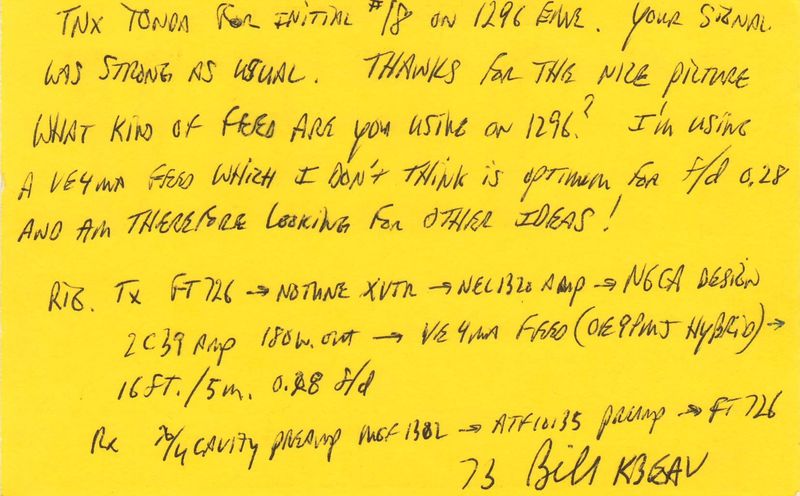 TNX TONDA FOR INITIAL #18 ON 1296 EME. YOUR SIGNAL
WAS STRONG AS USUAL. THANKS FOR THE NICE PICTURE
WHAT KIND OF FEED ARE YOU USING ON 1296? I'M USING
A VE4MA FEED WHICH I DON'T THINK IS OPTIMUM FOR f/d 0.28
AND AM THEREFORE LOOKING FOR OTHER IDEAS!
RIG. TX FT726 → NOTUNE XVTR → NEL1320 AMP → N6CA DESIGN
2C39 AMP 180W. OUT → VE4MA FEED (OE9PMJ HYBRID) →
16 FT./5 m. 0.28 f/d
RX CAVITY PREAMP MGF1302 → ATF10135 PREAMP → FT726
73 Bill